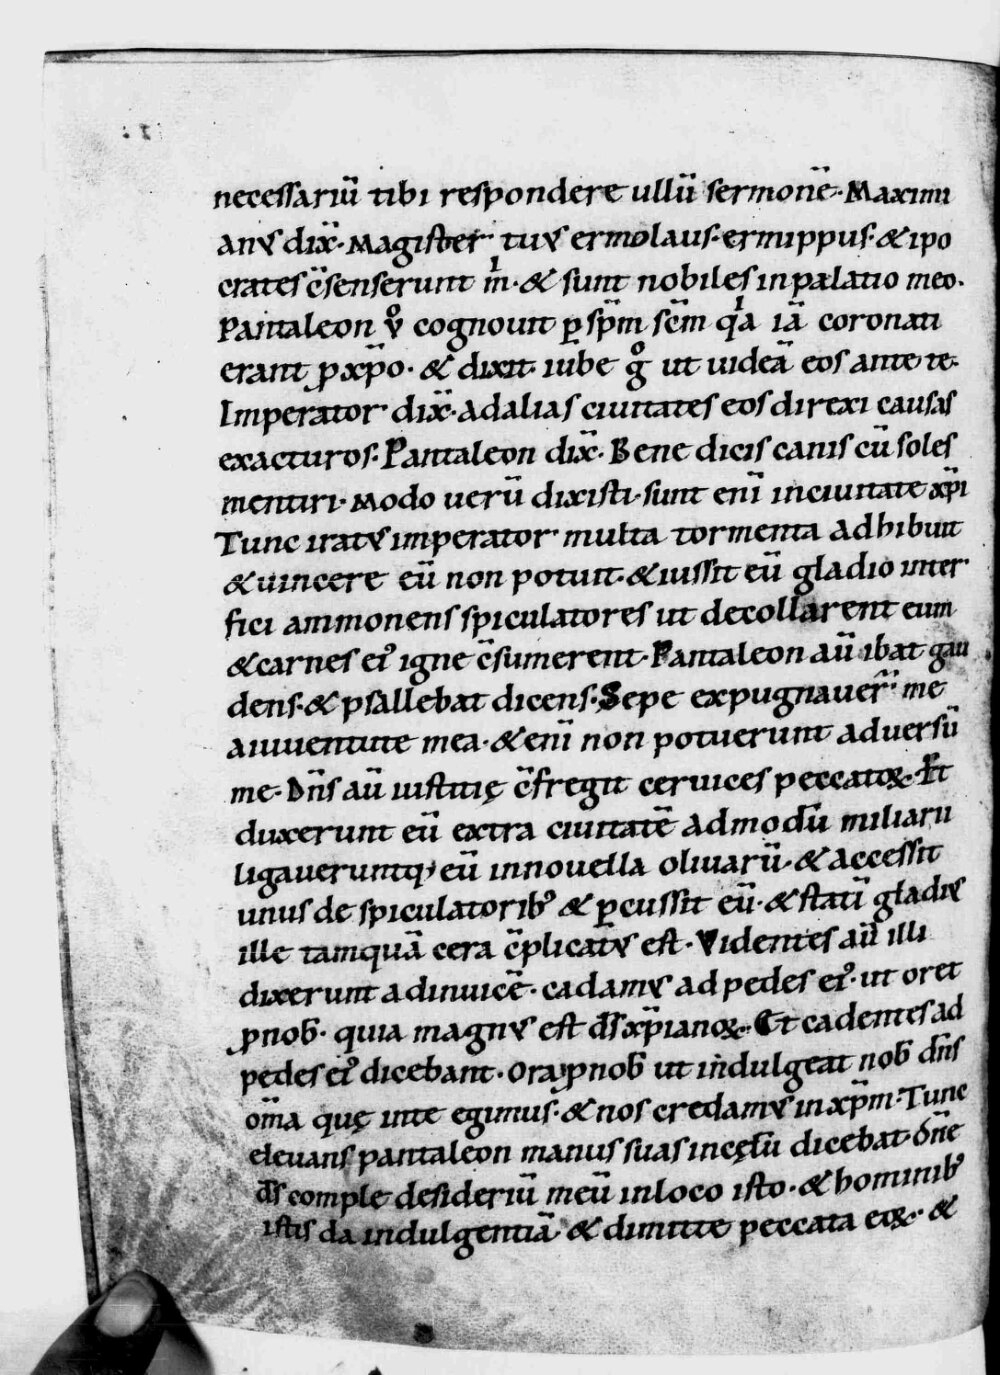 necessariū tibi respondere ullū sermonē. Maximi
anꝰ dix̄. Magister tuꝰ ermolaus. ermippus. & ipo
crates c̄senserunt m̍. & sunt nobiles in palatio meo.
Pantaleon v̊ cognouit ꝑ sp̄m sc̄m qͥa iā coronati
erant ꝓ xp̄o. & dixit. iube g̊ ut uideā eos ante te.
Imperator dix̄. ad alias ciuitates eos direxi causas
exacturos. Pantaleon dix̄. Bene dicis canis cū soles
mentiri. Modo uerū dixisti. sunt enī in ciuitate xp̄i
Tunc iratꝰ imperator multa tormenta adhibuit
& uincere eū non potuit. & iussit eū gladio inter
fici ammonens spiculatores ut decollarent eum
& carnes eiꝰ igne c̄sumerent. Pantaleon aū ibat gau
dens. & psallebat dicens. Sepe expugnauer̄ me
a iuuentute mea. & enī non potuerunt aduersū
me. Dn̄s aū iustitię c̄fregit ceruices peccatoꝝ. Et
duxerunt eū extra ciuitatē ad modū miliarii
ligaueruntq; eū in nouella oliuarū. & accessit
unus de spiculatoribꝰ & ꝑcussit eū. & statī gladiꝰ
ille tamquā cera c̄plicatꝰ est. Videntes aū illi
dixerunt ad inuicē. cadamꝰ ad pedes eiꝰ. ut oret
ꝓ nob̄. quia magnꝰ est ds̄ xp̄ianoꝝ. Et cadentes ad
pedes eiꝰ dicebant. Ora ꝓ nob̄ ut indulgeat nob̄ dn̄s
om̄a quę in te egimus. & nos credamꝰ in xp̄m. Tunc
eleuans pantaleon manus suas in cęlū dicebat. dn̄e
ds̄ comple desideriū meū in loco isto. & hominibꝰ
istis da indulgentiā. & dimitte peccata eoꝝ. &